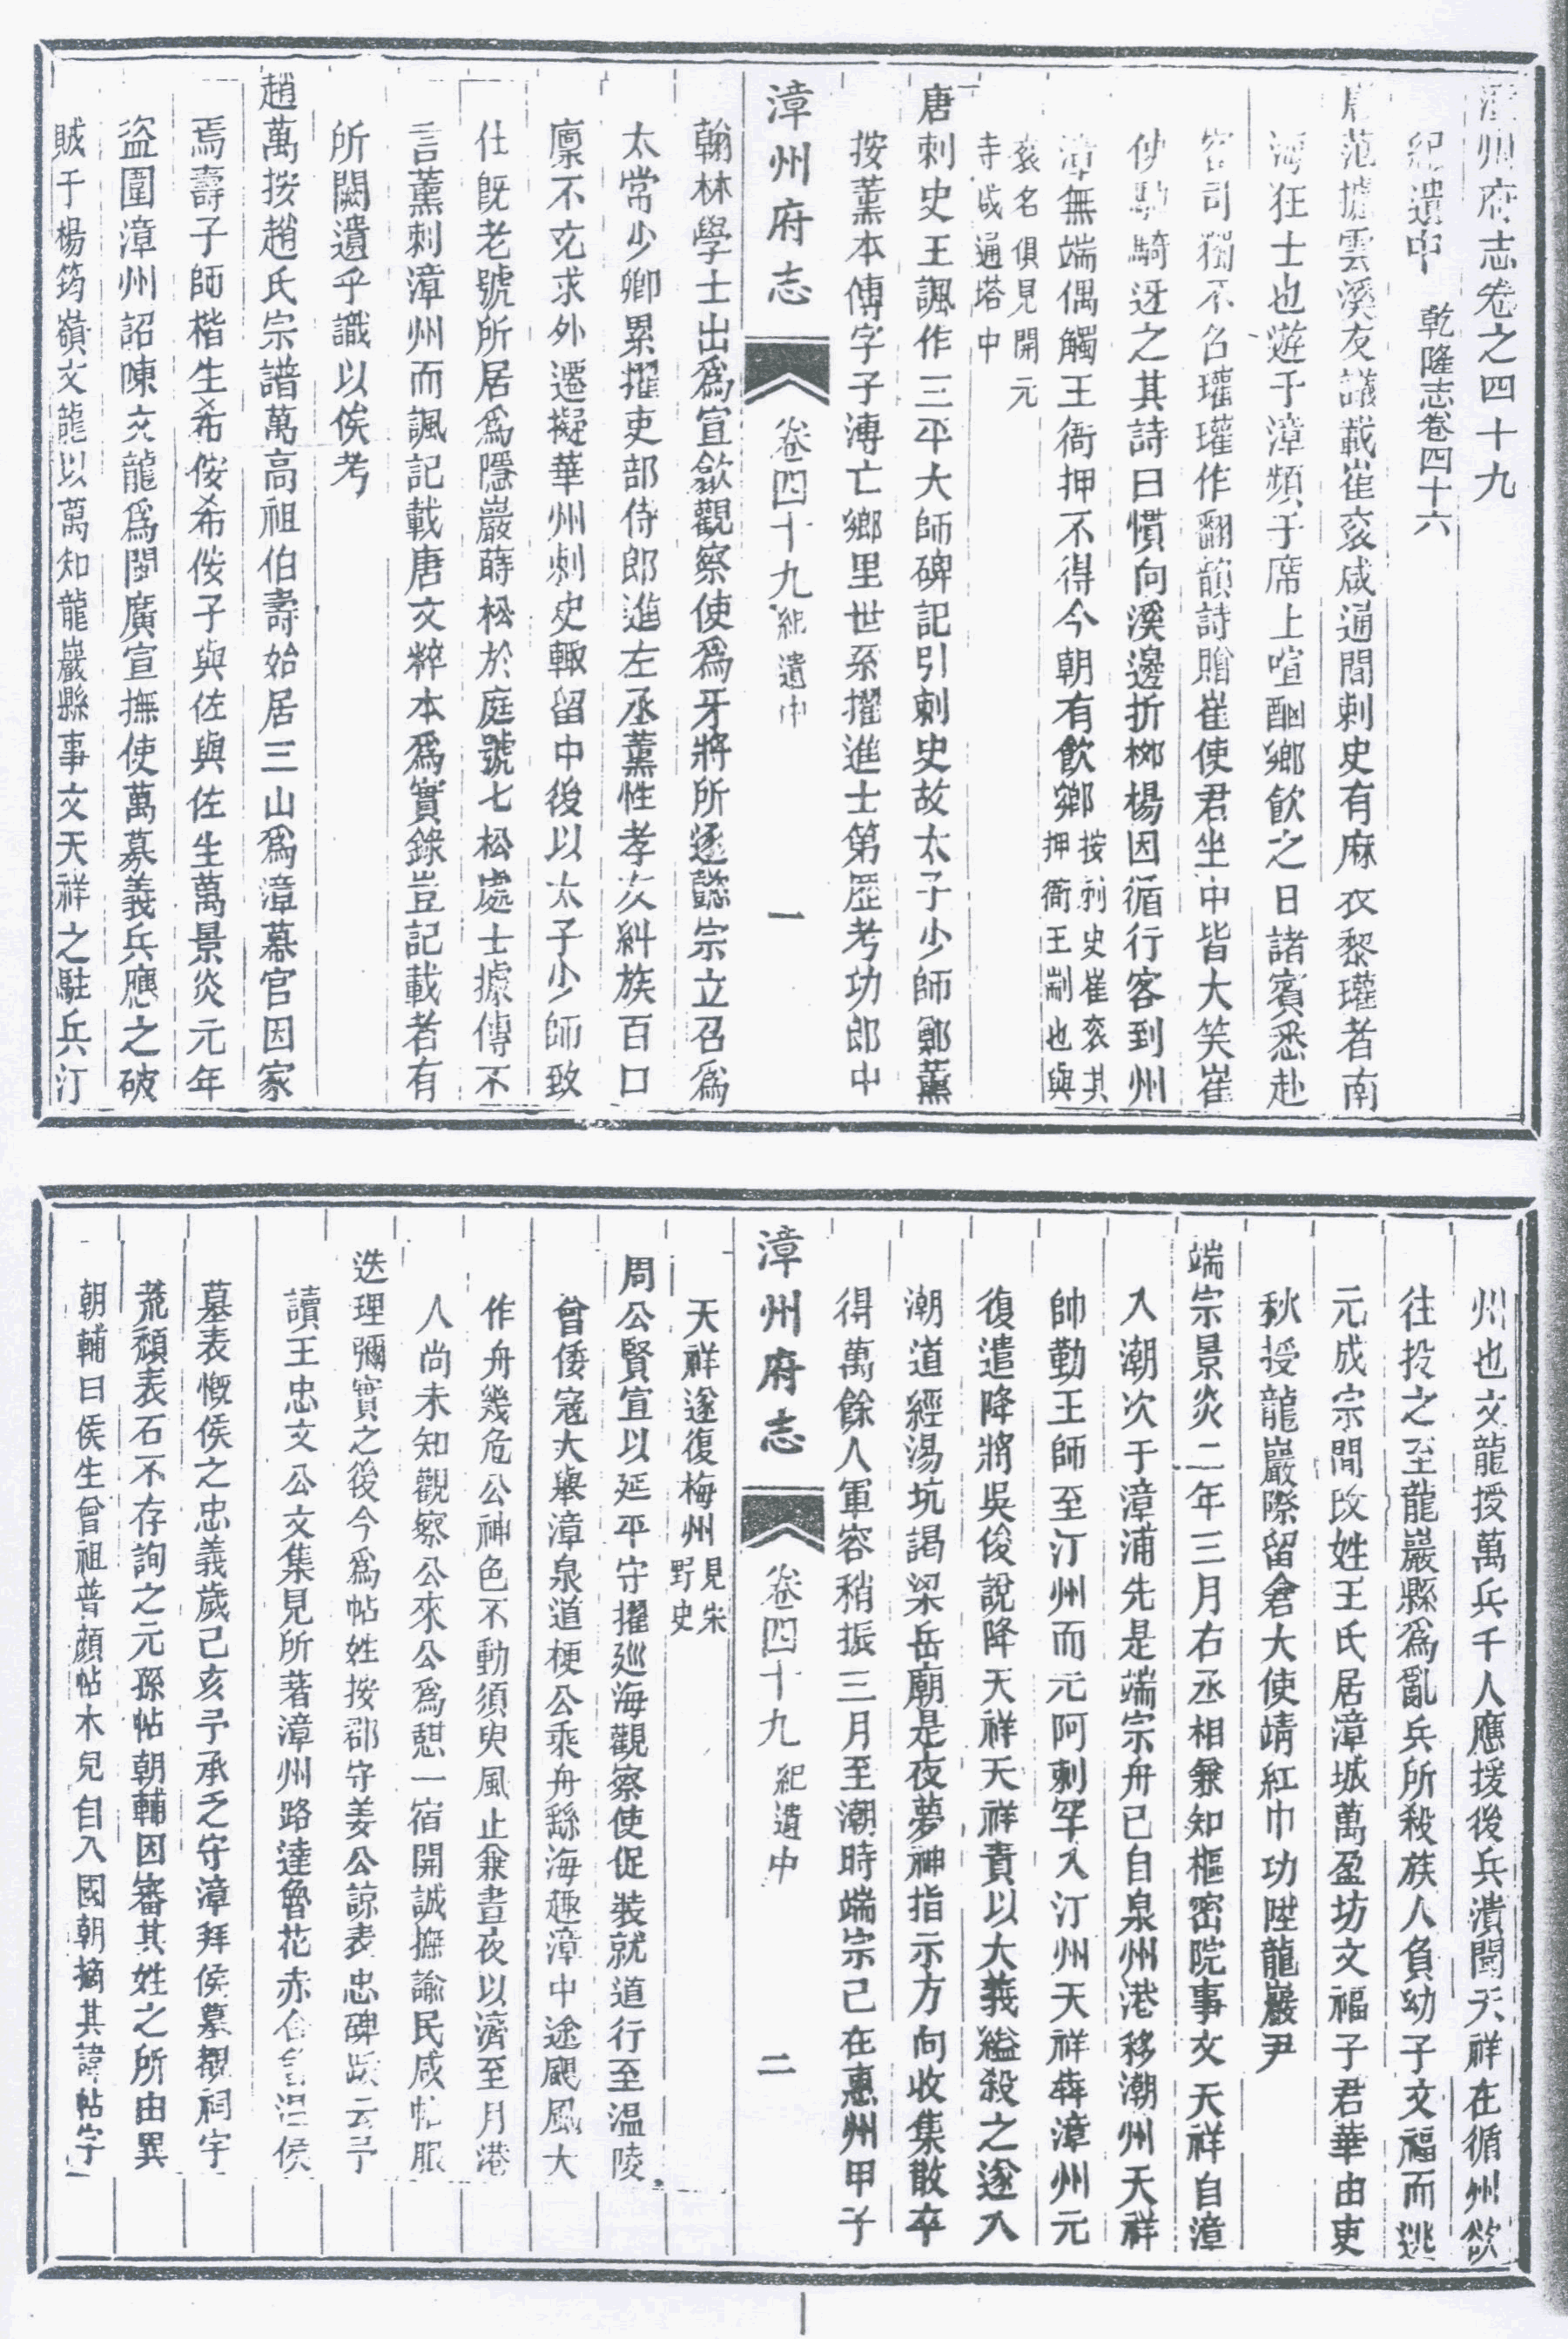 漳州府志卷之四十九
紀遺中　乾隆志卷四十六
唐范攄雲溪友議載崔袞咸通間刺史有麻衣黎瓘者南
海狂士也遊于漳頻于席上喧酗鄉飲之日諸賓悉赴
客司獨不召瓘瓘作翻韻詩贈崔使君坐中皆大笑崔
使馳騎迓之其詩曰慣向溪邊折栁楊因循行客到州
漳無端偶觸王衙押不得今朝有飲鄉按刺史崔袞其
押衙王制也與
袞名俱見開元
寺咸通塔中
唐刺史王諷作三平大師碑記引刺史故太子少師鄭薰
按薰本傳字子溥亡鄉里世系擢進士第歷考功郎中
漳州府志　卷四十九紀遺中　一
翰林學士出爲宣歙觀察使爲牙將所逐懿宗立召爲
太常少卿累擢吏部侍郎進左丞薰性孝友糾族百口
廪不充求外遷擬華州刺史輙留中後以太子少師致
仕旣老號所居爲隱巖蒔松於庭號七松處士據傳不
言薰刺漳州而諷記載唐文粹本爲實錄豈記載者有
所闕遺乎識以俟考
趙萬按趙氏宗譜萬高祖伯壽始居三山爲漳幕官因家
焉壽子師楷生希侒希侒子與佐與佐生萬景炎元年
盜圍漳州詔陳文龍爲閩廣宣撫使萬募義兵應之破
賊于楊筠嶺文龍以萬知龍巖縣事文天祥之駐兵汀
州也文龍授萬兵千人應援後兵潰聞天祥在循州欲
往投之至龍巖縣爲亂兵所殺族人負幼子文福而逃
元成宗間改姓王氏居漳城萬盈坊文福子君華由吏
秋授龍巖際留倉大使靖紅巾功陞龍巖尹
端宗景炎二年三月右丞相兼知樞密院事文天祥自漳
入潮次于漳浦先是端宗舟已自泉州港移潮州天祥
帥勤王師至汀州而元阿剌罕入汀州天祥犇漳州元
復遣降將吳俊說降天祥天祥責以大義縊殺之遂入
潮道經湯坑謁梁岳廟是夜夢神指示方向收集散卒
得萬餘人軍容稍振三月至潮時端宗已在惠州甲子
漳州府志　卷四十九　紀遺中　二
天祥遂復梅州見宋
野史
周公賢宣以延平守擢巡海觀察使促裝就道行至温陵
曾倭寇大舉漳泉道梗公乘舟繇海趣漳中途颶風大
作舟幾危公神色不動須臾風止兼晝夜以濟至月港
人尚未知觀察公來公爲憇一宿開誠撫諭民咸帖服
迭理彌實之後今爲帖姓按郡守姜公諒表忠碑跋云予
讀王忠文公文集見所著漳州路達魯花赤合侯
墓表慨侯之忠義歲己亥予承乏守漳拜侯墓覩祠宇
荒頽表石不存詢之元孫帖朝輔因審其姓之所由異
朝輔曰侯生曾祖普顔帖木兒自入國朝摘其諱帖字